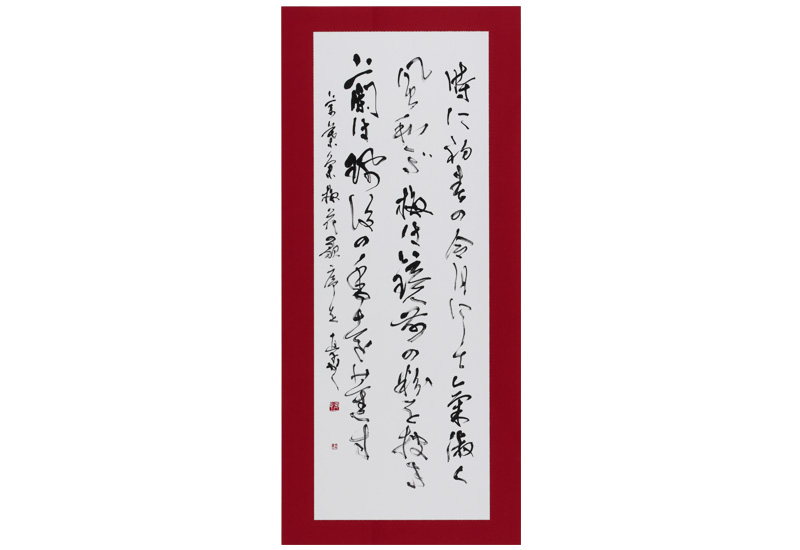 時に初春の令月にして氣淑く
風和ぎ梅は鏡前の粉を披き
蘭は珮後の香を薫す
萬葉集梅花歌序